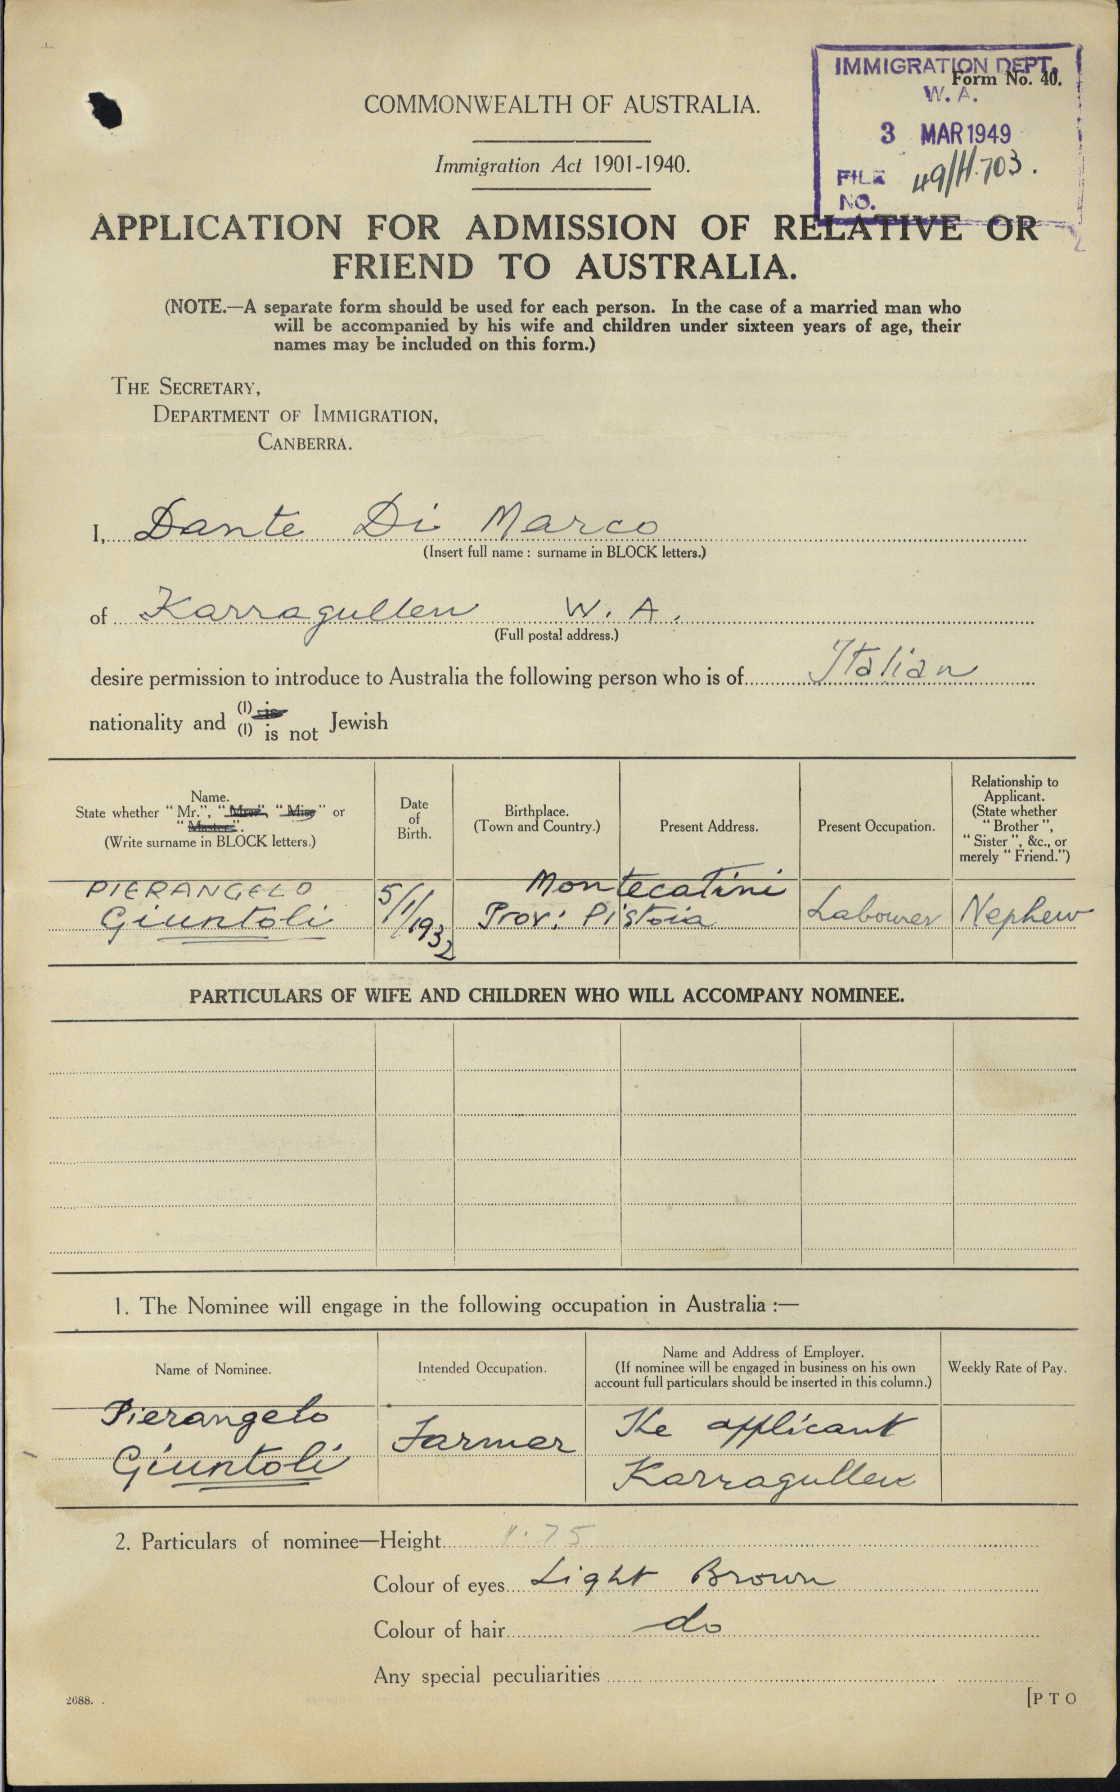 IMMIGRATION DEPT.
Form No. 40.
W. A.
3 MAR 1949
FILE NO. 49/H.703.
COMMONWEALTH OF AUSTRALIA.
Immigration Act 1901-1940.
APPLICATION FOR ADMISSION OF RELATIVE OR
FRIEND TO AUSTRALIA.
(NOTE.—A separate form should be used for each person. In the case of a married man who
will be accompanied by his wife and children under sixteen years of age, their
names may be included on this form.)
THE SECRETARY,
DEPARTMENT OF IMMIGRATION,
CANBERRA.
I, Dante Di Marco
(Insert full name : surname in BLOCK letters.)
of Karragullen W. A.
(Full postal address.)
desire permission to introduce to Australia the following person who is of Italian
nationality and (1) is
(1) is not Jewish
Name.
State whether "Mr.", "Mrs", "Miss" or
"Master".
(Write surname in BLOCK letters.)
Date
of
Birth.
Birthplace.
(Town and Country.)
Present Address.
Present Occupation.
Relationship to
Applicant.
(State whether
"Brother",
"Sister", &c., or
merely "Friend.")
PIERANGELO
Giuntoli
5/1/1932
Montecatini
Prov: Pistoia
Labourer
Nephew
PARTICULARS OF WIFE AND CHILDREN WHO WILL ACCOMPANY NOMINEE.
1. The Nominee will engage in the following occupation in Australia :—
Name of Nominee.
Intended Occupation.
Name and Address of Employer.
(If nominee will be engaged in business on his own
account full particulars should be inserted in this column.)
Weekly Rate of Pay.
Pierangelo
Giuntoli
Farmer
The applicant
Karragullen
2. Particulars of nominee—Height 1.75
Colour of eyes Light Brown
Colour of hair do
Any special peculiarities
2688.
[P T O